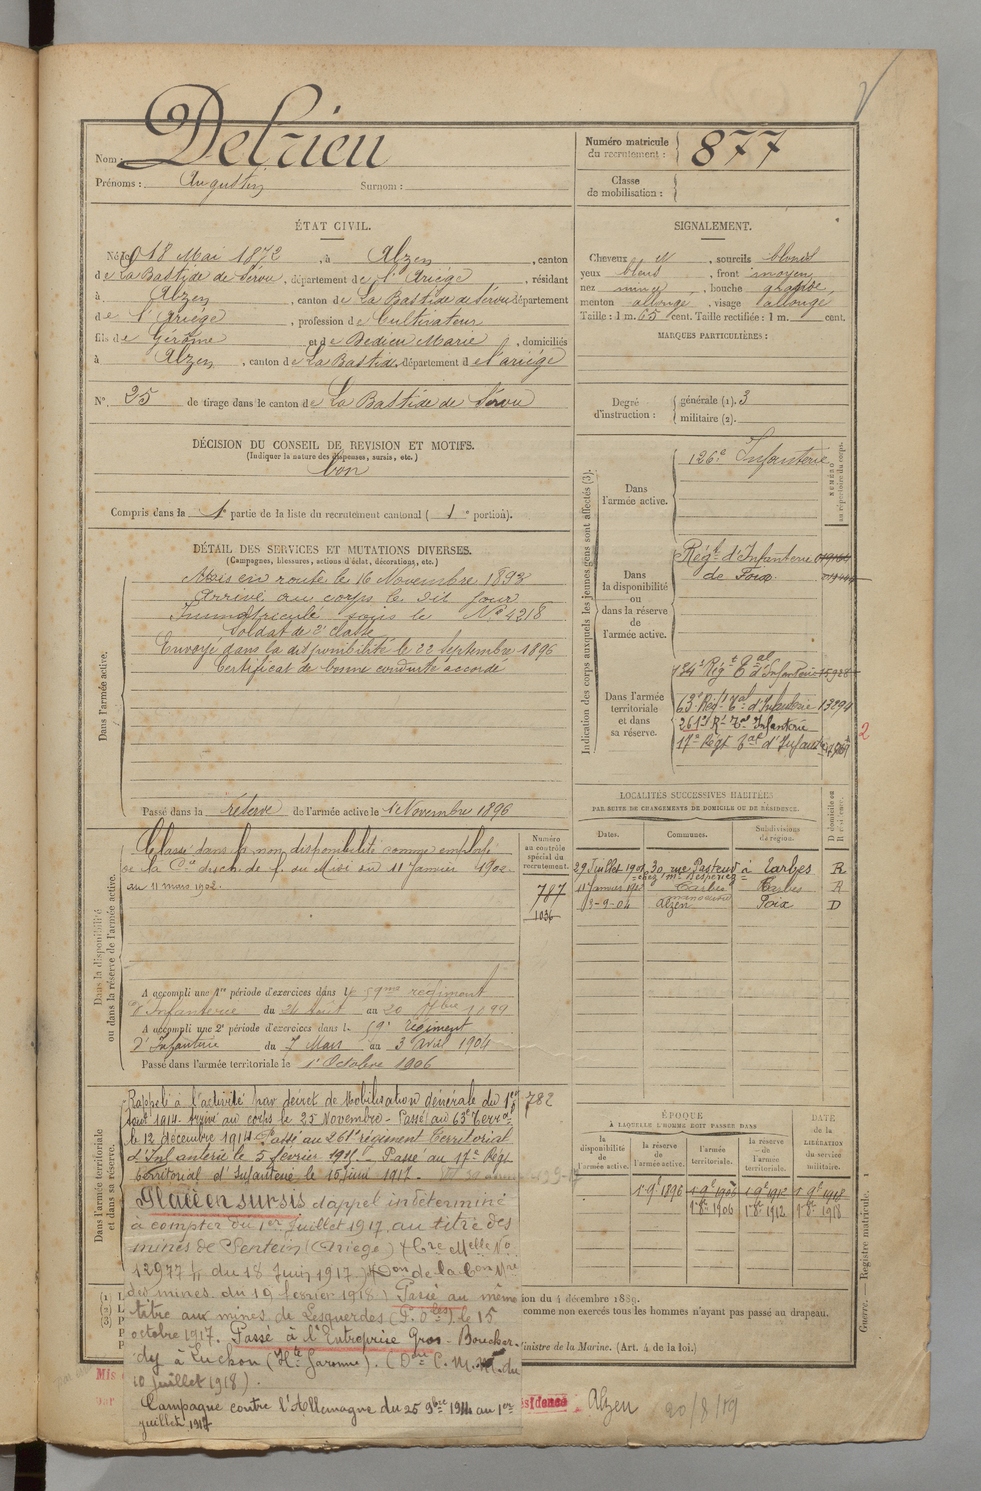 Nom : Delrieu
Prénoms : Augustin Surnom :
Numéro matricule du recrutement : 877
Classe de mobilisation :
ÉTAT CIVIL.
Né le 18 Mai 1872, à Alzen, canton
de La Bastide de Sérou, département de l'Ariége, résidant
à Alzen, canton de La Bastide de Sérou département
de l'Ariége, profession de Cultivateur
fils de Gérôme et de Bedieu Marie, domiciliés
à Alzen, canton de La Bastide, département de l'ariége
N° 25 de tirage dans le canton de La Bastide de Sérou
SIGNALEMENT.
Cheveux N, sourcils blonds
yeux bleus, front moyen
nez mince, bouche grande,
menton allongé, visage allongé
Taille : 1 m. 65 cent. Taille rectifiée : 1 m. cent.
MARQUES PARTICULIÈRES :
Degré d'instruction : générale (1). 3
militaire (2).
DÉCISION DU CONSEIL DE REVISION ET MOTIFS.
(Indiquer la nature des dispenses, sursis, etc.)
bon
Compris dans la 1e partie de la liste du recrutement cantonal ( 1e portion).
DÉTAIL DES SERVICES ET MUTATIONS DIVERSES.
(Campagnes, blessures, actions d'éclat, décorations, etc.)
Dans l'armée active.
Mis en route le 16 Novembre 1893
Arrivé au corps le dit jour
Immatriculé sous le N° 4218
Soldat de 2e classe
Envoyé dans la disponibilité le 22 Septembre 1896
Certificat de bonne conduite accordé
Passé dans la réserve de l'armée active le 1e Novembre 1896
Indication des corps auxquels les jeunes gens sont affectés (3).
NUMÉRO au répertoire du corps.
Dans l'armée active.
126e Infanterie
Dans la disponibilité ou dans la réserve de l'armée active.
Régt d'Infanterie
de Foix
Dans l'armée territoriale et dans sa réserve.
134e Régt Tal d'Infanterie 15928
63e Régt Tal d'Infanterie 13294
261e Rt Tal Infanterie
17e Régt Tal d'Infanterie
2
Dans la disponibilité ou dans la réserve de l'armée active.
Classé dans la non disponibilité comme employé
de la Cie du ch. de f. du Midi du 11 Janvier 1902
au 11 mars 1902.
Numéro au contrôle spécial du recrutement.
787
1036
A accompli une 1re période d'exercices dans le 59me régiment
d'Infanterie du 24 Août au 20 7bre 1899
A accompli une 2e période d'exercices dans le 59e régiment
d'Infanterie du 7 Mars au 3 Avril 1904
Passé dans l'armée territoriale le 1e Octobre 1906
LOCALITÉS SUCCESSIVES HABITÉES
PAR SUITE DE CHANGEMENTS DE DOMICILE OU DE RÉSIDENCE.
Dates. Communes. Subdivisions de région. D domicile ou R résidence.
29 Juillet 1901 30 rue Pasteur à Tarbes R
11 Janvier 1902 Tarbes Tarbes R
13-9-04 Alzen Foix D
Dans l'armée territoriale et dans sa réserve.
Rappelé à l'activité par décret de Mobilisation Générale du 1er
Août 1914. Arrivé au corps le 25 Novembre. Passé au 63e Terral
le 12 décembre 1914. Passé au 261e régiment Territorial
d'Infanterie le 5 février 1915. Passé au 17e Régt
territorial d'Infanterie le 15 juin 1917.
782
Placé en sursis d'appel indéterminé
à compter du 1er Juillet 1917 au titre des
mines de Sentein (Ariège) (Cre Melle No
12977 4/4 du 18 Juin 1917) (Don de la Con Mre
des mines du 19 février 1918) Passé au même
titre aux mines de Lesquerdes (P. Oles) le 15
octobre 1917. Passé à l'Entreprise Gros-Boucher-
dy à Luchon (Hte Garonne). (Don C. M. M. du
10 juillet 1918).
Campagne contre l'Allemagne du 25 9bre 1914 au 1er
juillet 1917
ÉPOQUE
À LAQUELLE L'HOMME DOIT PASSER DANS
la disponibilité de l'armée active. la réserve de l'armée active. l'armée territoriale. la réserve de l'armée territoriale.
DATE de la LIBÉRATION du service militaire.
1e 9e 1896 1e 9e 1906 1e 9e 1912 1e 9e 1918
1e 8e 1906 1e 8e 1912 1e 8e 1918
ion du 4 décembre 1889.
comme non exercés tous les hommes n'ayant pas passé au drapeau.
Ministre de la Marine. (Art. 4 de la loi.)
Guerre. — Registre matricule.
Mis
par
ésidence Alzen 20/8/19